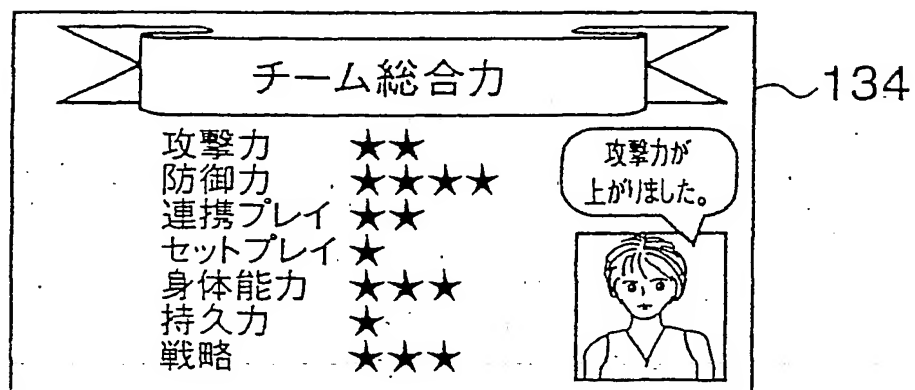 チーム総合力
134
攻撃力 ★★
防御力 ★★★★
連携プレイ ★★
セットプレイ ★
身体能力 ★★★
持久力 ★
戦略 ★★★
攻撃力が
上がりました。